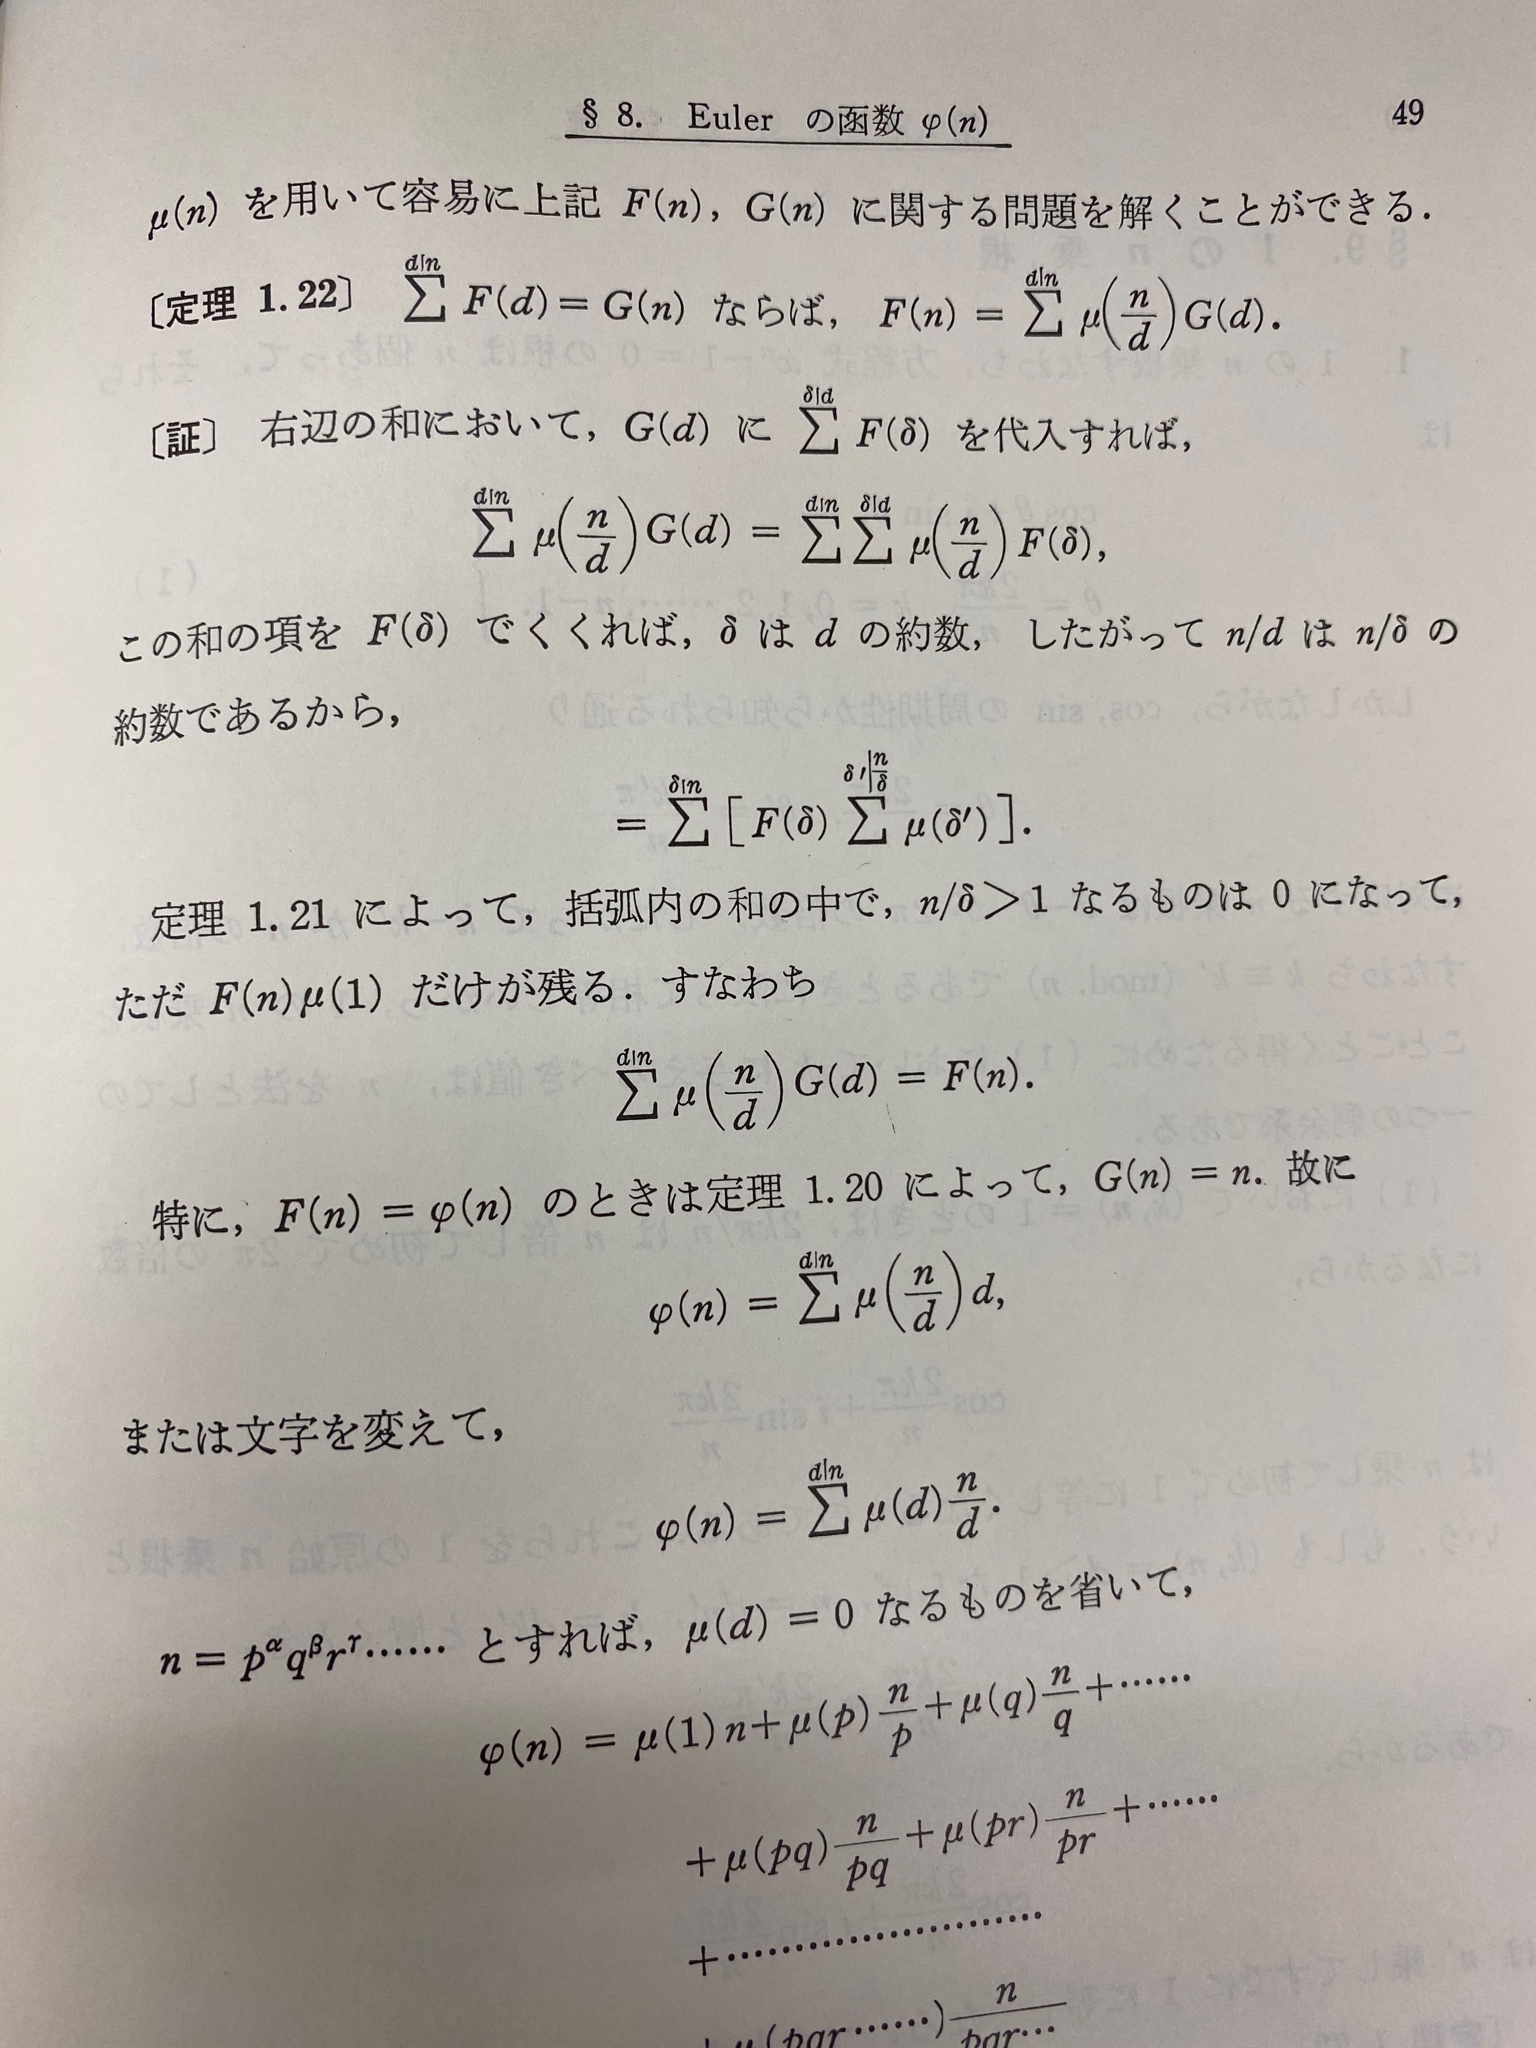 § 8. Euler の函数 φ(n) 49
μ(n) を用いて容易に上記 F(n), G(n) に関する問題を解くことができる.
〔定理 1.22〕 ∑^{d|n} F(d) = G(n) ならば, F(n) = ∑^{d|n} μ(n/d) G(d).
〔証〕 右辺の和において, G(d) に ∑^{δ|d} F(δ) を代入すれば,
∑^{d|n} μ(n/d) G(d) = ∑^{d|n} ∑^{δ|d} μ(n/d) F(δ),
この和の項を F(δ) でくくれば, δ は d の約数, したがって n/d は n/δ の
約数であるから,
= ∑^{δ|n} [ F(δ) ∑^{δ′|n/δ} μ(δ′) ].
定理 1.21 によって, 括弧内の和の中で, n/δ>1 なるものは 0 になって,
ただ F(n)μ(1) だけが残る. すなわち
∑^{d|n} μ(n/d) G(d) = F(n).
特に, F(n) = φ(n) のときは定理 1.20 によって, G(n) = n. 故に
φ(n) = ∑^{d|n} μ(n/d) d,
または文字を変えて,
φ(n) = ∑^{d|n} μ(d) n/d.
n = p^α q^β r^γ…… とすれば, μ(d) = 0 なるものを省いて,
φ(n) = μ(1) n + μ(p) n/p + μ(q) n/q + ……
+ μ(pq) n/pq + μ(pr) n/pr + ……
+ ……………………
+ μ(pqr……) n/pqr…